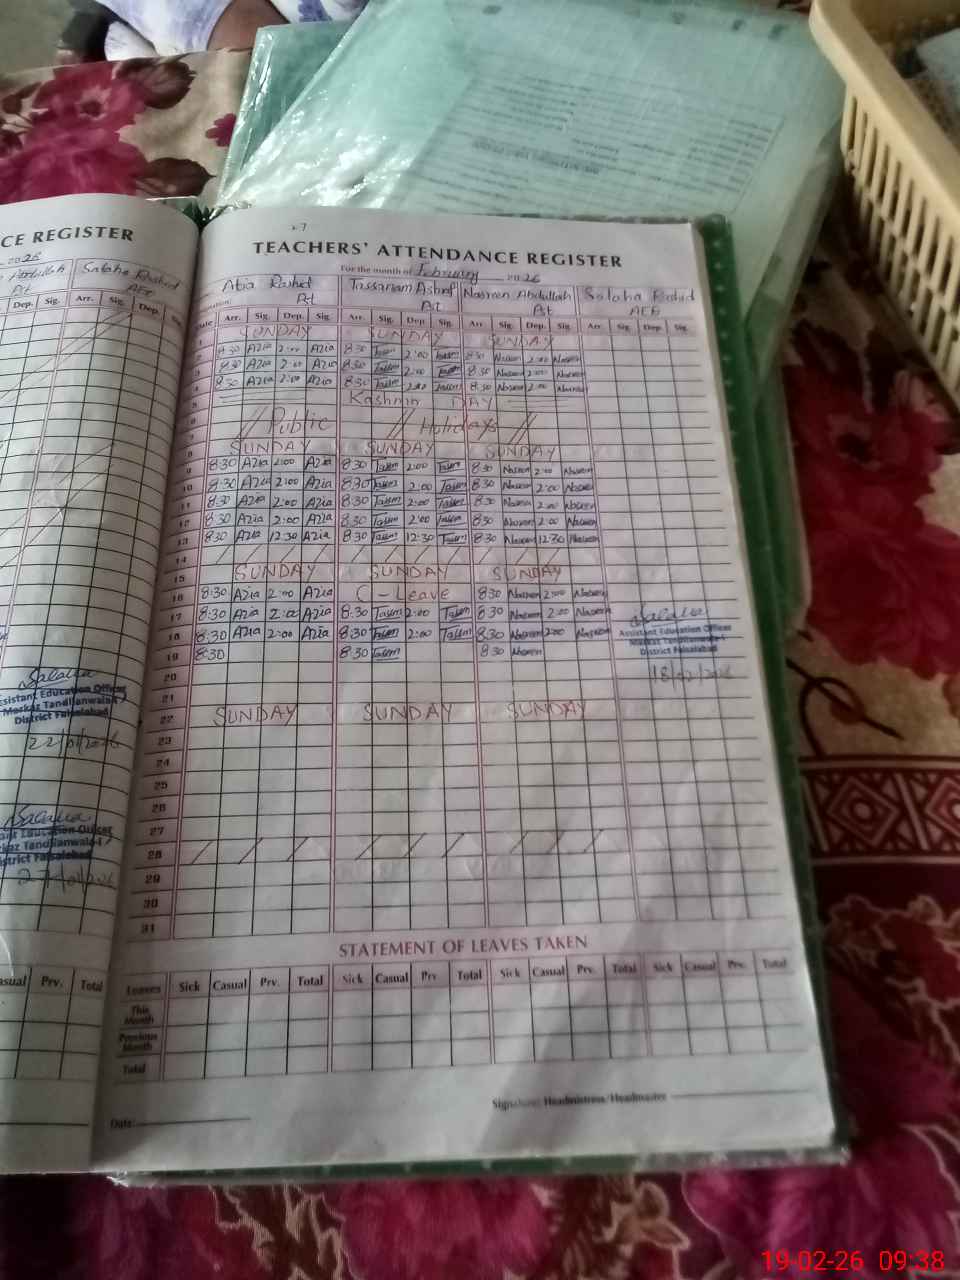 CE REGISTER
2026
Salaha Rashid
Pst
AEE
Arr. Sig. Dep. Sig.
TEACHERS' ATTENDANCE REGISTER
For the month of February 2026
Tassanam Ashraf Nasreen Abdullah Salaha Rashid
Pst Pst Pst AEE
Arr. Sig. Dep. Sig. Arr. Sig. Dep. Sig. Arr Sig. Dep. Sig. Arr Sig. Dep Sig.
1 SUNDAY SUNDAY SUNDAY
2 8:30 Azia 2:00 Azia 8:30 Tasim 2:00 Tasim 8:30 Nasreen 2:00 Nasreen
3 8:30 Azia 2:00 Azia 8:30 Tasim 2:00 Tasim 8:30 Nasreen 2:00 Nasreen
4 8:30 Azia 2:00 Azia 8:30 Tasim 2:00 Tasim 8:30 Nasreen 2:00 Nasreen
5 Kashmir DAY
6 // Public // Holidays //
7
8 SUNDAY SUNDAY SUNDAY
9 8:30 Azia 2:00 Azia 8:30 Tasim 2:00 Tasim 8:30 Nasreen 2:00 Nasreen
10 8:30 Azia 2:00 Azia 8:30 Tasim 2:00 Tasim 8:30 Nasreen 2:00 Nasreen
11 8:30 Azia 2:00 Azia 8:30 Tasim 2:00 Tasim 8:30 Nasreen 2:00 Nasreen
12 8:30 Azia 2:00 Azia 8:30 Tasim 2:00 Tasim 8:30 Nasreen 2:00 Nasreen
13 8:30 Azia 12:30 Azia 8:30 Tasim 12:30 Tasim 8:30 Nasreen 12:30 Nasreen
14
15 SUNDAY SUNDAY SUNDAY
16 8:30 Azia 2:00 Azia C-Leave 8:30 Nasreen 2:00 Nasreen
17 8:30 Azia 2:00 Azia 8:30 Tasim 2:00 Tasim 8:30 Nasreen 2:00 Nasreen
18 8:30 Azia 2:00 Azia 8:30 Tasim 2:00 Tasim 8:30 Nasreen 2:00 Nasreen
19 8:30 8:30 Tasim 8:30 Nasreen
20
21
22 SUNDAY SUNDAY SUNDAY
23
24
25
26
27
28
29
30
31
Salaha
Assistant Education Officer
Markaz Tandlianwala-I
District Faisalabad
18/02/2026
Salaha
Assistant Education Officer
Markaz Tandlianwala-I
District Faisalabad
22/01/2026
Salaha
Education Officer
Tandlianwala-I
District Faisalabad
27/01/2026
STATEMENT OF LEAVES TAKEN
Casual Prv. Total
Leaves Sick Casual Prv. Total Sick Casual Prv Total Sick Casual Prv. Total Sick Casual Prv. Total
This Month
Previous Month
Total
Signature Headmistress/Headmaster
Date:
19-02-26 09:38